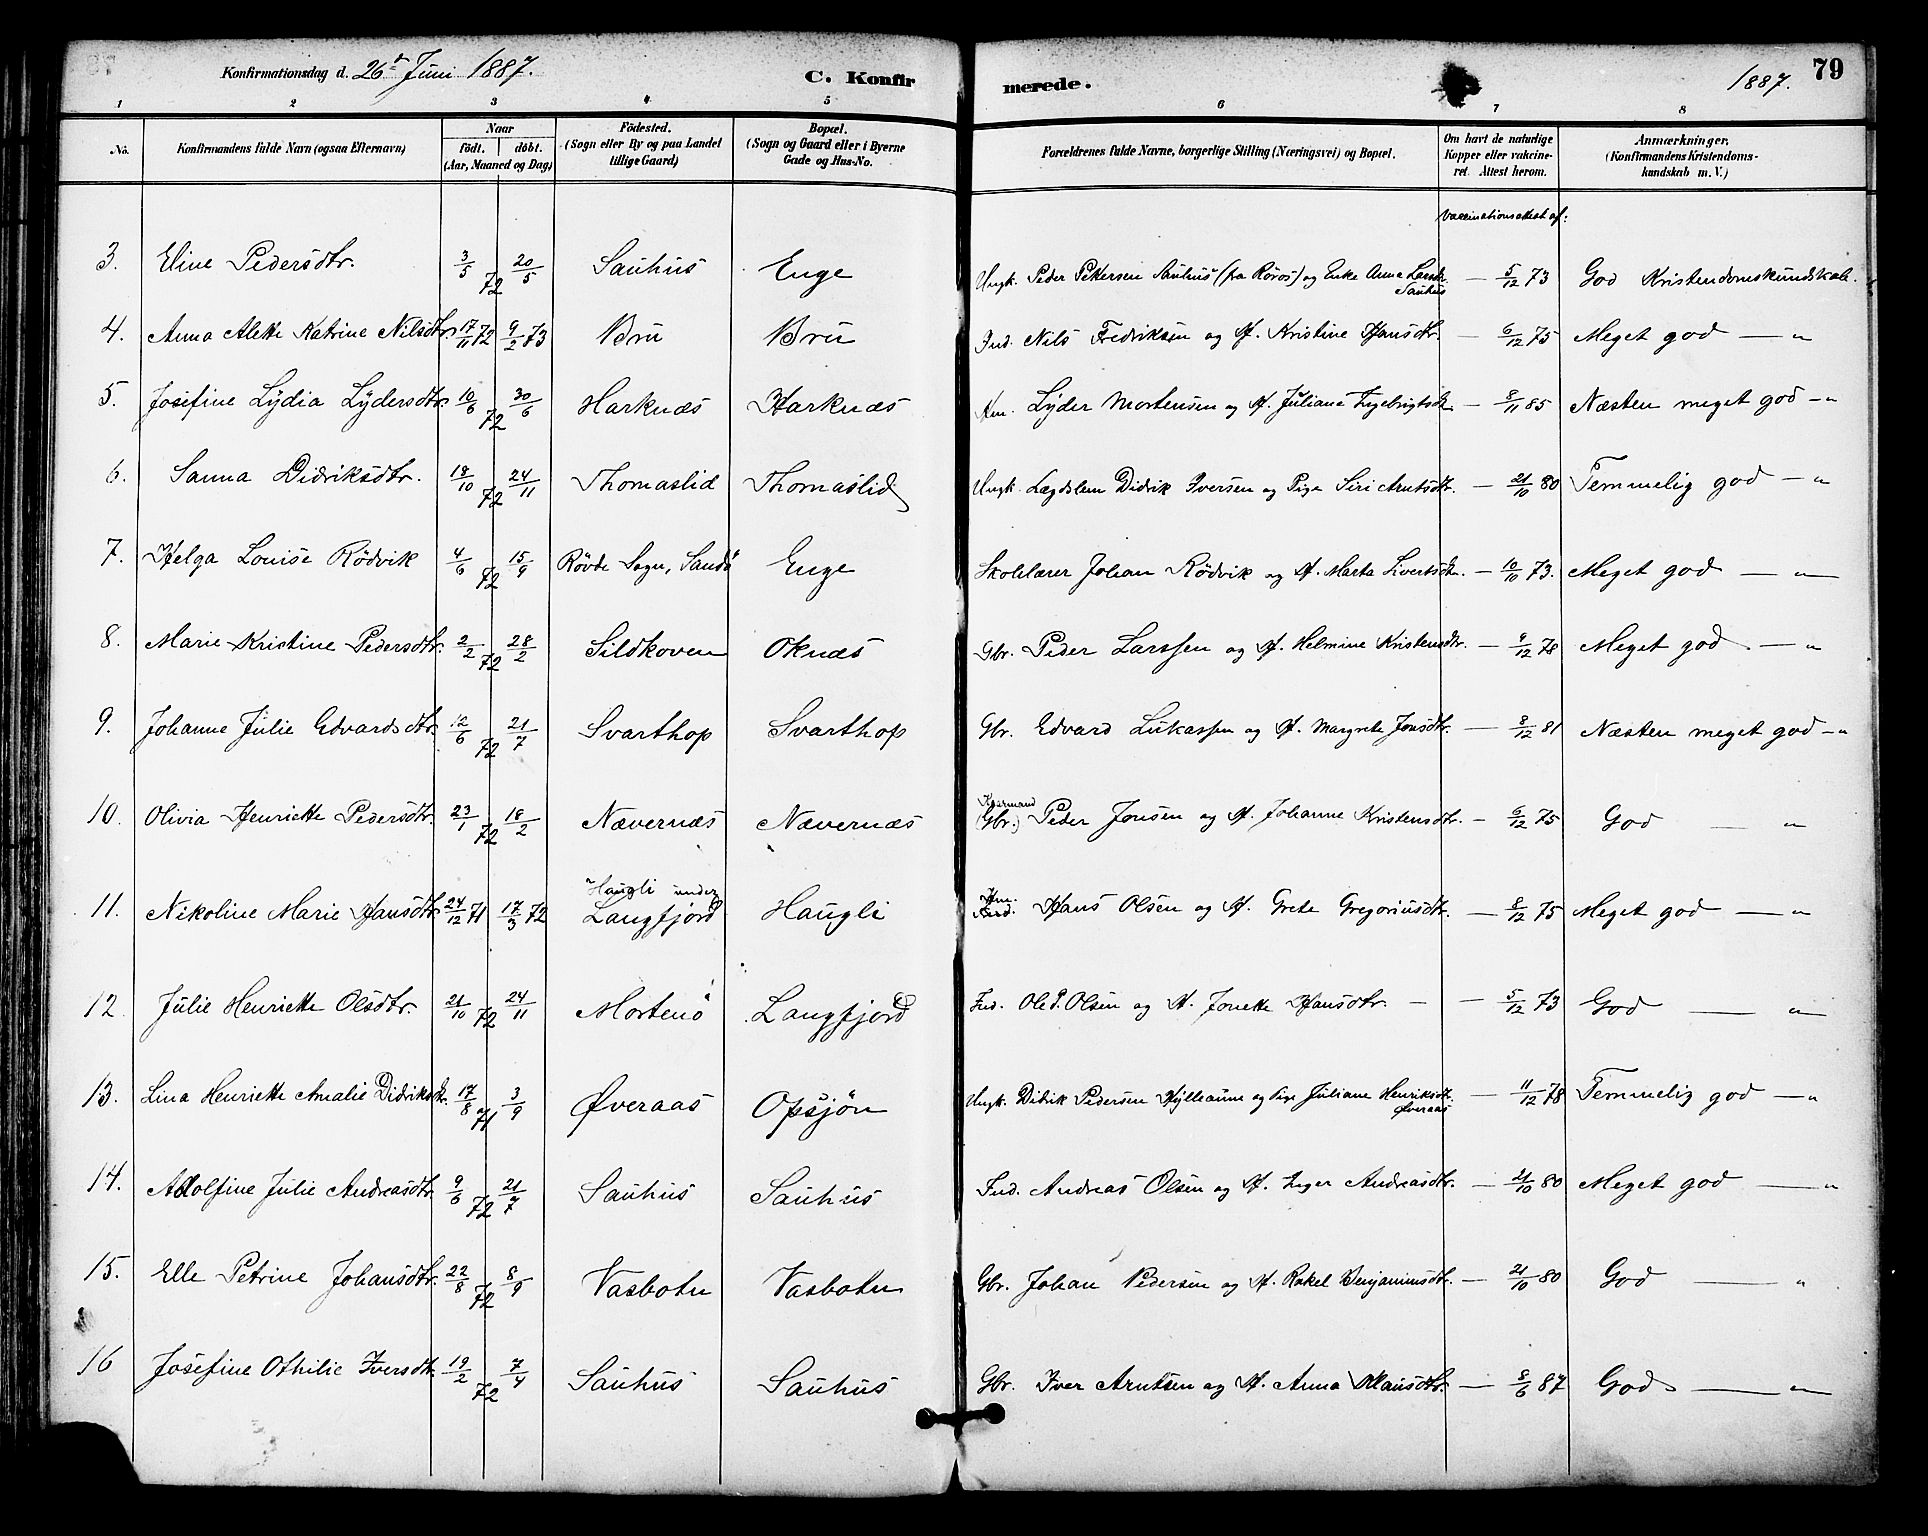 Konfirmationsdag d. 26de Juni 1887. C. Konfirmerede. 1887. 79
1 2 3 4 5 6 7 8
No. Konfirmandens fulde Navn (ogsaa Efternavn) Naar födt. döbt. (Aar, Maaned og Dag) Födested. (Sogn eller By og paa Landet tillige Gaard) Bopæl. (Sogn og Gaard eller i Byerne Gade og Hus-No. Forældrenes fulde Navne, borgerlige Stilling (Næringsvei) og Bopæl. Om havt de naturlige Kopper eller vakcineret. Attest herom. Anmærkninger. (Konfirmandens Kristendomskundskab m. V.)
Vaccinationsattest af:
3. Eline Pedersdtr. 3/5 72 20/5 Sauhus Enge Ungk. Peder Pettersen Sauhus (fra Röros) og Enke Anna Larsdtr. Sauhus — 5/12 73 God Kristendomskundskab.
4. Anna Alette Katrine Nilsdtr. 17/11 72 9/2 73 Bru Bru Ind. Nils Fredriksen og H. Kristine Hansdtr. — 6/12 75 Meget god — "
5. Josefine Lydia Lydersdtr. 10/6 72 30/6 Harknæs Harknæs Hm. Lyder Mortensen og H. Juliane Ingebrigtsdtr. — 8/11 85 Næsten meget god — "
6. Sanna Didriksdtr. 18/10 72 24/11 Thomaslid Thomaslid Ungk. Lægdslem Didrik Iversen og Pige Siri Arntsdtr. — 21/10 80 Temmelig god — "
7. Helga Louise Rödvik 4/6 72 15/9 Rövde Sogn, Sandö Enge Skolelærer Johan Rödvik og H. Marta Sivertsdtr. — 10/10 73. Meget god — "
8. Marie Kristine Pedersdtr. 2/2 72 28/2 Sildkoven Oknæs Gbr. Peder Larssen og H. Helmine Kristensdtr. — 9/12 78 Meget god — "
9. Johanne Julie Edvardsdtr. 12/6 72 21/7 Svarthop Svarthop Gbr. Edvard Lukassen og H. Margrete Jonsdtr. — 8/12 81 Næsten meget god — "
10. Olivia Henriette Pedersdtr. 23/1 72 18/2 Nævernæs Nævernæs Kaarmand (Gbr.) Peder Jonsen og H. Johanne Kristensdtr. — 6/12 75 God — "
11. Nikoline Marie Hansdtr. 24/12 71 17/3 72 Haugli under Langfjord Haugli Hm. Ind. Hans Olsen og H. Grete Gregoriusdtr. — 8/12 75 Meget god — "
12. Julie Henriette Olsdtr. 21/10 72 24/11 Mortenö Langfjord Ind. Ole P. Olsen og H. Jonette Hansdtr. — 5/12 73 God — "
13. Lina Henriette Amalie Didriksdtr. 17/8 71 3/9 Øveraas Opsjön Ungk. Didrik Pedersen Hylleaune og Pige Juliane Henriksdtr. Øveraas — 11/12 78 Temmelig god — "
14. Adolfine Julie Andreasdtr. 9/6 72 21/7 Sauhus Sauhus Ind. Andreas Olsen og H. Inger Andreasdtr. — 21/10 80 Meget god — "
15. Elle Petrine Johansdtr. 22/8 72 8/9 Vasbotn Vasbotn Gbr. Johan Pedersen og H. Rakel Benjaminsdtr. — 21/10 80 God — "
16 Josefine Othilie Iversdtr. 19/2 72 7/4 Sauhus Sauhus Gbr. Iver Arntsen og H. Anna Hansdtr. — 8/6 87 God — "